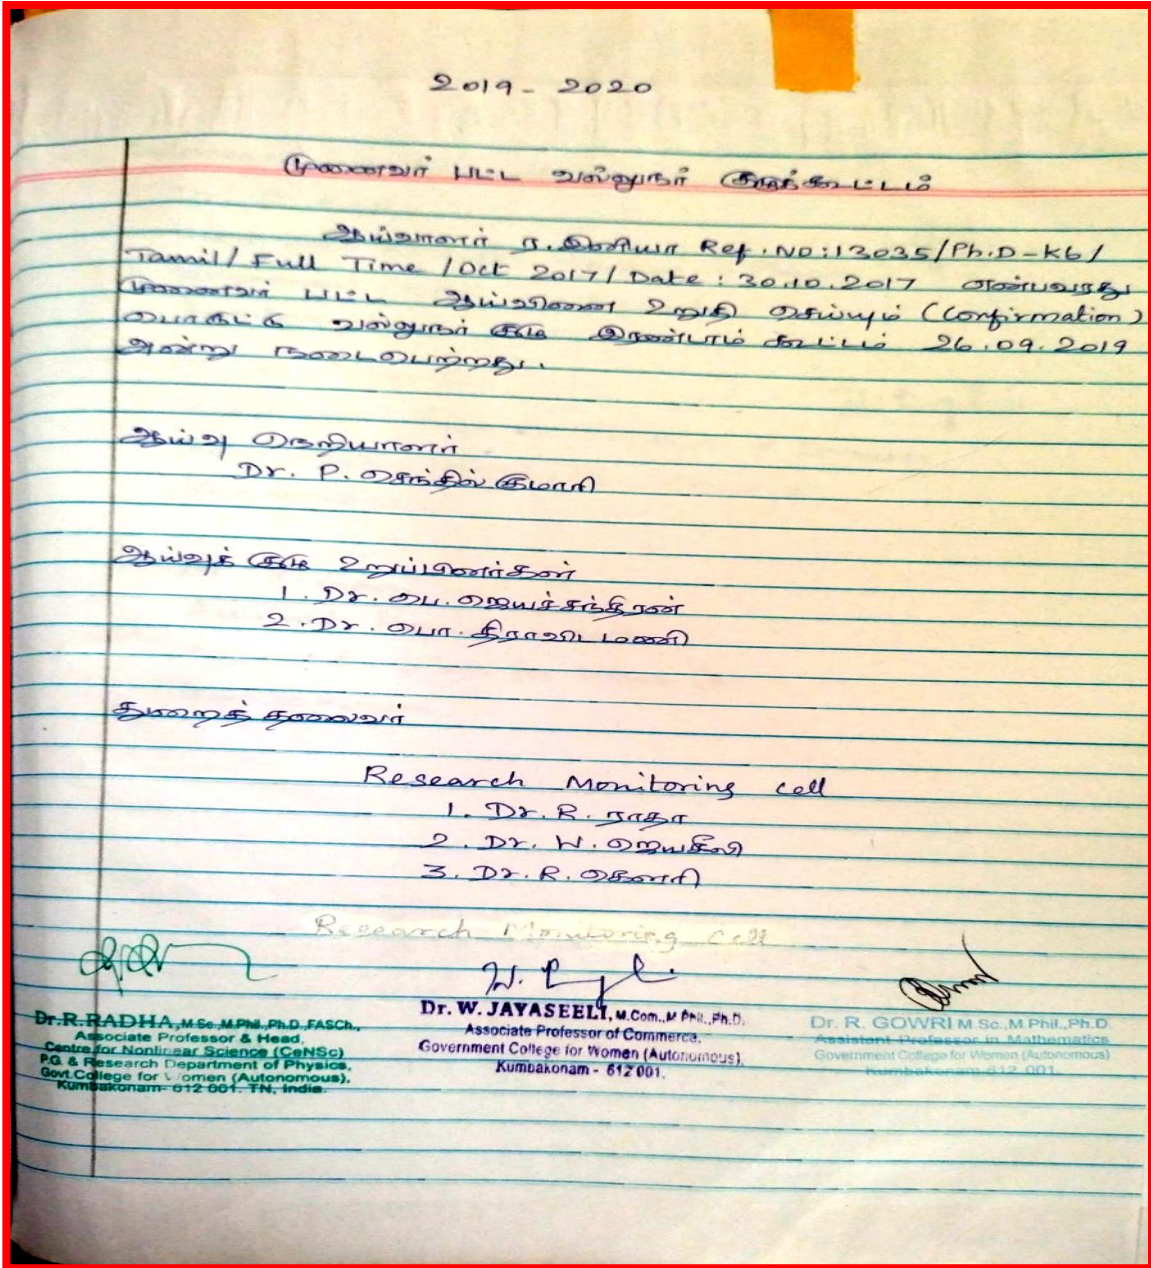 2019 - 2020
முனைவர் பட்ட வல்லுநர் குழுக்கூட்டம்
ஆய்வாளர் ந. இனியா Ref. No: 13035/Ph.D-K6/
Tamil/ Full Time /Oct 2017/ Date : 30.10.2017 என்பவரது
முனைவர் பட்ட ஆய்வினை உறுதி செய்யும் (Confirmation)
பொருட்டு வல்லுநர் குழு இரண்டாம் கூட்டம் 26.09.2019
அன்று நடைபெற்றது.
ஆய்வு நெறியாளர்
Dr. P. செந்தில் குமாரி
ஆய்வுக் குழு உறுப்பினர்கள்
1. Dr. பை. ஜெயச்சந்திரன்
2. Dr. பொ. திராவிடமணி
துறைத் தலைவர்
Research Monitoring cell
1. Dr. R. ராதா
2. Dr. W. ஜெயசீலி
3. Dr. R. கௌரி
Research Monitoring Cell
Dr.R.RADHA, M.Sc.,M.Phil.,Ph.D.,FASCh.,
Associate Professor & Head,
Centre for Nonlinear Science (CeNSc)
P.G. & Research Department of Physics,
Govt.College for Women (Autonomous),
Kumbakonam- 612 001. TN, India.
Dr. W. JAYASEELI, M.Com.,M.Phil.,Ph.D.
Associate Professor of Commerce,
Government College for Women (Autonomous),
Kumbakonam - 612 001.
Dr. R. GOWRI M.Sc.,M.Phil.,Ph.D.
Assistant Professor in Mathematics
Government College for Women (Autonomous)
Kumbakonam-612 001.